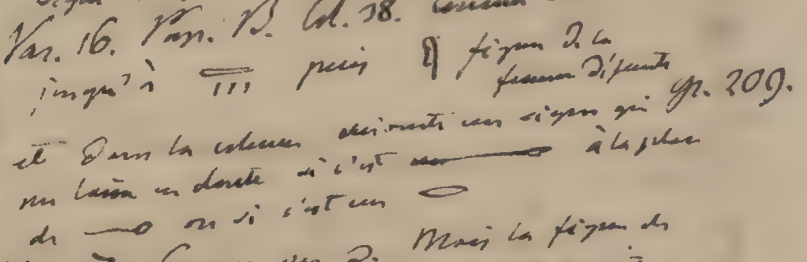 Var. 16. Pap. B. Col. 38. comme
jusqu'à 𓈙 III puis figure de la
femme défunte
et dans la colonne suivante un signe qui gr. 209.
me laisse en doute si c'est un à la place
de ou si c'est un
2. Mais la figure de